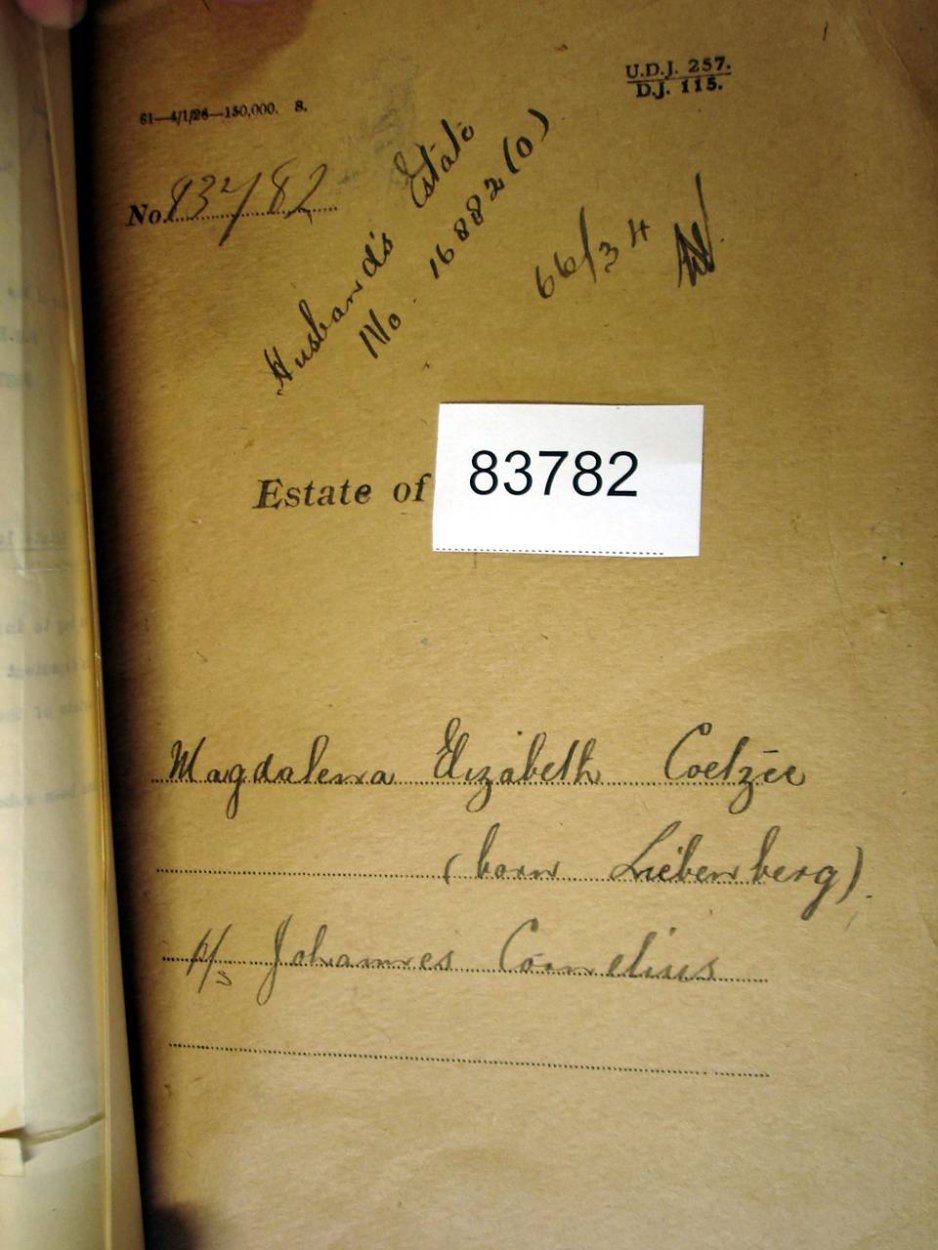 U.D.J. 257.
D.J. 115.
61—4/1/26—150,000. S.
No. 83782
Husband's Estate
No. 16882(0)
66/34
Estate of
83782
Magdalena Elizabeth Coetzee
(born Liebenberg).
Johannes Cornelius